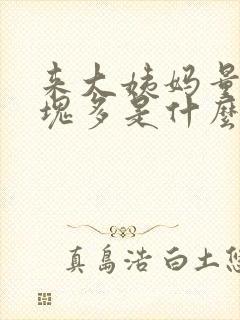 来大姨妈量
块多是什麼
真島浩 白土悠